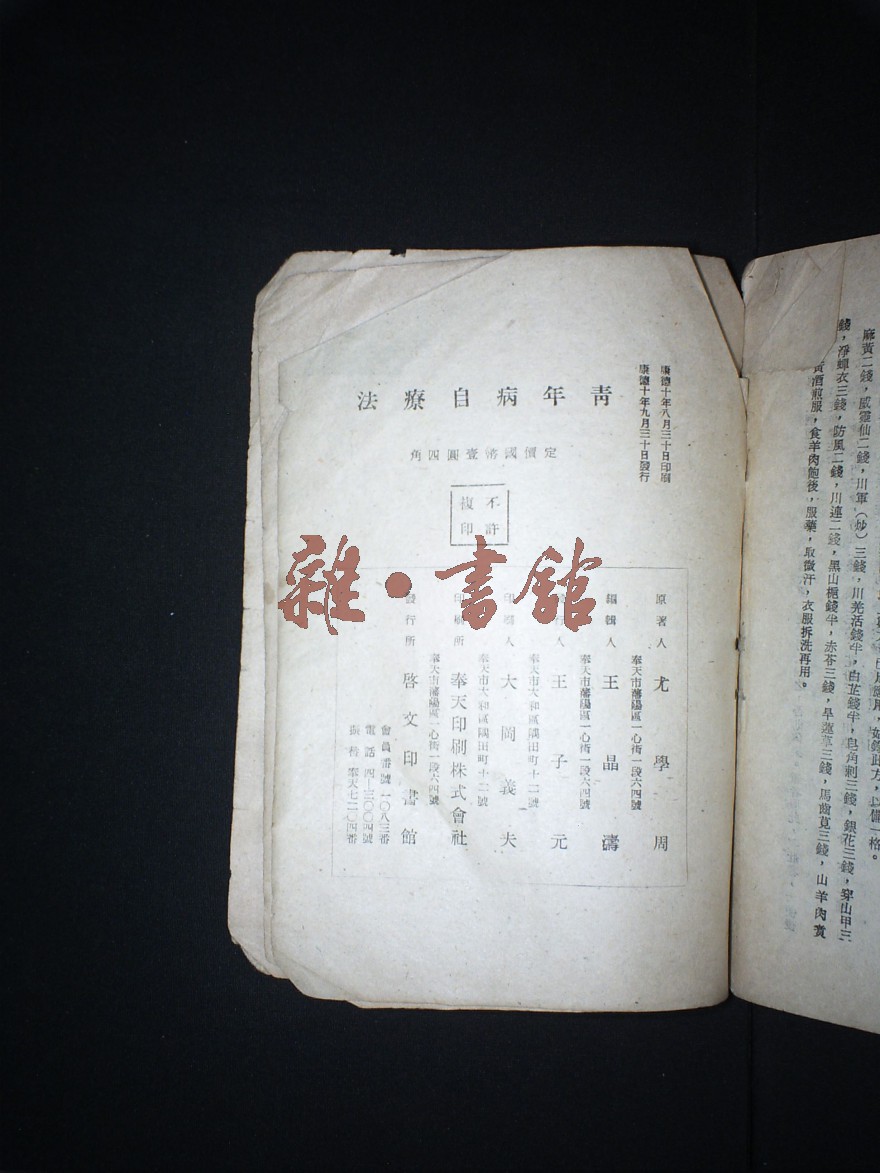 麻黃二錢，威靈仙二錢，川軍（炒）三錢，川羌活錢半，白芷錢半，皂角刺三錢，銀花三錢，穿山甲三
錢，淨蟬衣三錢，防風二錢，川連二錢，黑山梔錢半，赤苓三錢，旱蓮草三錢，馬齒莧三錢，山羊肉煑
黃酒煎服，食羊肉飽後，服藥，取微汗，衣服拆洗再用。
康德十年八月三十日印刷
康德十年九月三十日發行
靑年病自療法
定價國幣壹圓四角
不許
複印
原著人 尤學周
奉天市瀋陽區一心街一段六四號
編輯人 王晶濤
奉天市瀋陽區一心街一段六四號
發行人 王子元
奉天市大和區隅田町十二號
印刷人 大岡義夫
奉天市大和區隅田町十二號
印刷所 奉天印刷株式會社
奉天市瀋陽區一心街一段六四號
發行所 啓文印書館
會員番號一〇八三番
電話 四—三〇〇四號
振替 奉天七二〇四番
雜·書館